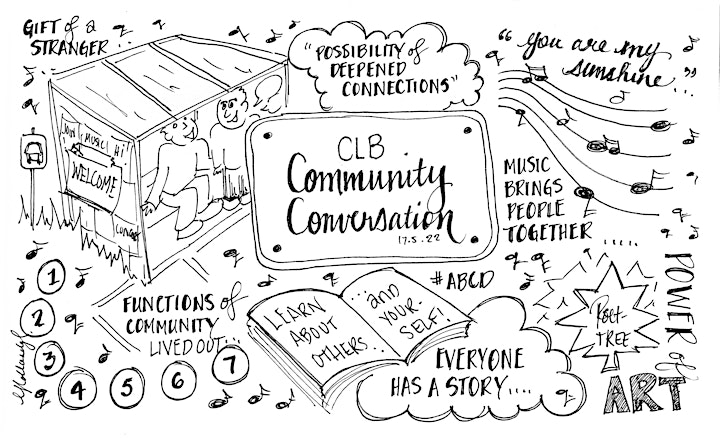 GIFT of a
STRANGER...
"POSSIBILITY of
DEEPENED
CONNECTIONS"
"you are my
sunshine..."
WELCOME
CLB
Community
Conversation
17.5.22
MUSIC
BRINGS
PEOPLE
TOGETHER.....
#ABCD
FUNCTIONS of
COMMUNITY
LIVED OUT...
1
2
3
4
5
6
7
LEARN
ABOUT
OTHERS...
...and
YOUR-
SELF!
EVERYONE
HAS A STORY....
Poet-
TREE
POWER of
ART